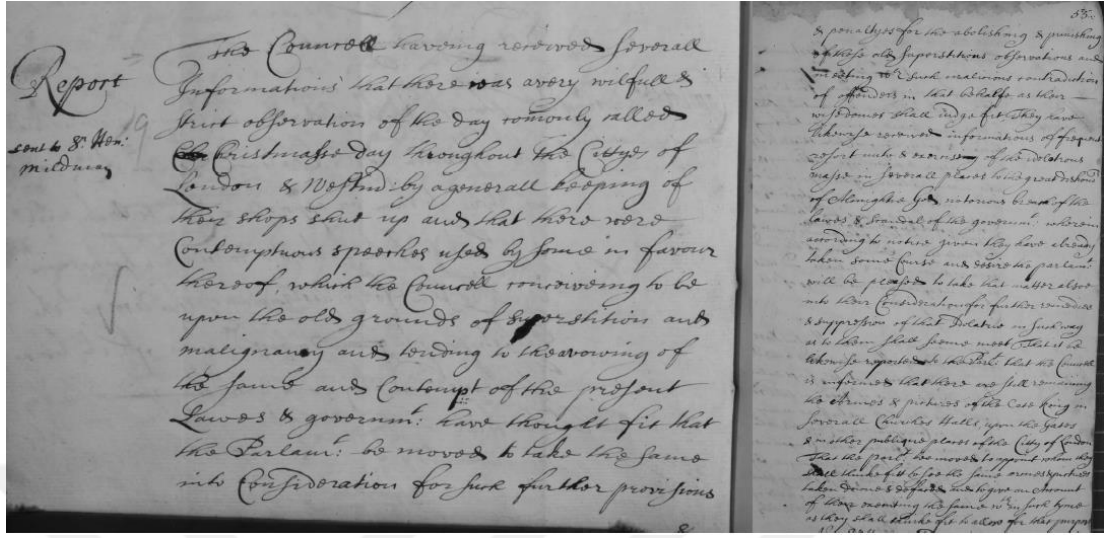 Report
sent to Sr Hen:
mildmay
The Councell haveing received severall
Informations that there was a very wilfull &
strict observation of the day comonly called
Christmasse day throughout the Cittyes of
London & Westmr: by a generall keeping of
their shops shut up and that there were
Contemptuous speeches used by some in favour
thereof, which the Councell conceiveing to be
upon the old grounds of superstition and
malignancy and tending to the avowing of
the same and Contempt of the present
Lawes & governmt: have thought fit that
the Parlamt: be moved to take the same
into Consideration for such further provisions
&
& penaltyes for the abolishing & punishing
of those old superstitions observations and
meeting wth such malicious contradiction
of offenders in that behalfe as their
wisedomes shall judge fit, They have
likewise received informations of frequent
resort unto & exercising of the idolatrous
masse in severall places to the great dishonr
of Almightie God, notorious breach of the
lawes & scandal of the governmt: wherein
according to notice given they have already
taken some Course and desire the parlamt
will be pleased to take that matter alsoe
into their Consideration for further remedies
& suppression of that Idolatrie in such way
as to them shall seeme meet That it be
likewise reported to the Parlt: that the Councell
is informed that there are still remaining
the Armes & pictures of the Late King in
severall Churches Halls, upon the Gates
& in other publique places of the Citty of London
That the parlt: bee moved to appoint whom they
shall thinke fitt to see the same armes & pictures
taken downe & defaced and to give an Account
of their executing the same wthin such tyme
as they shall thinke fit to allow for that purpose